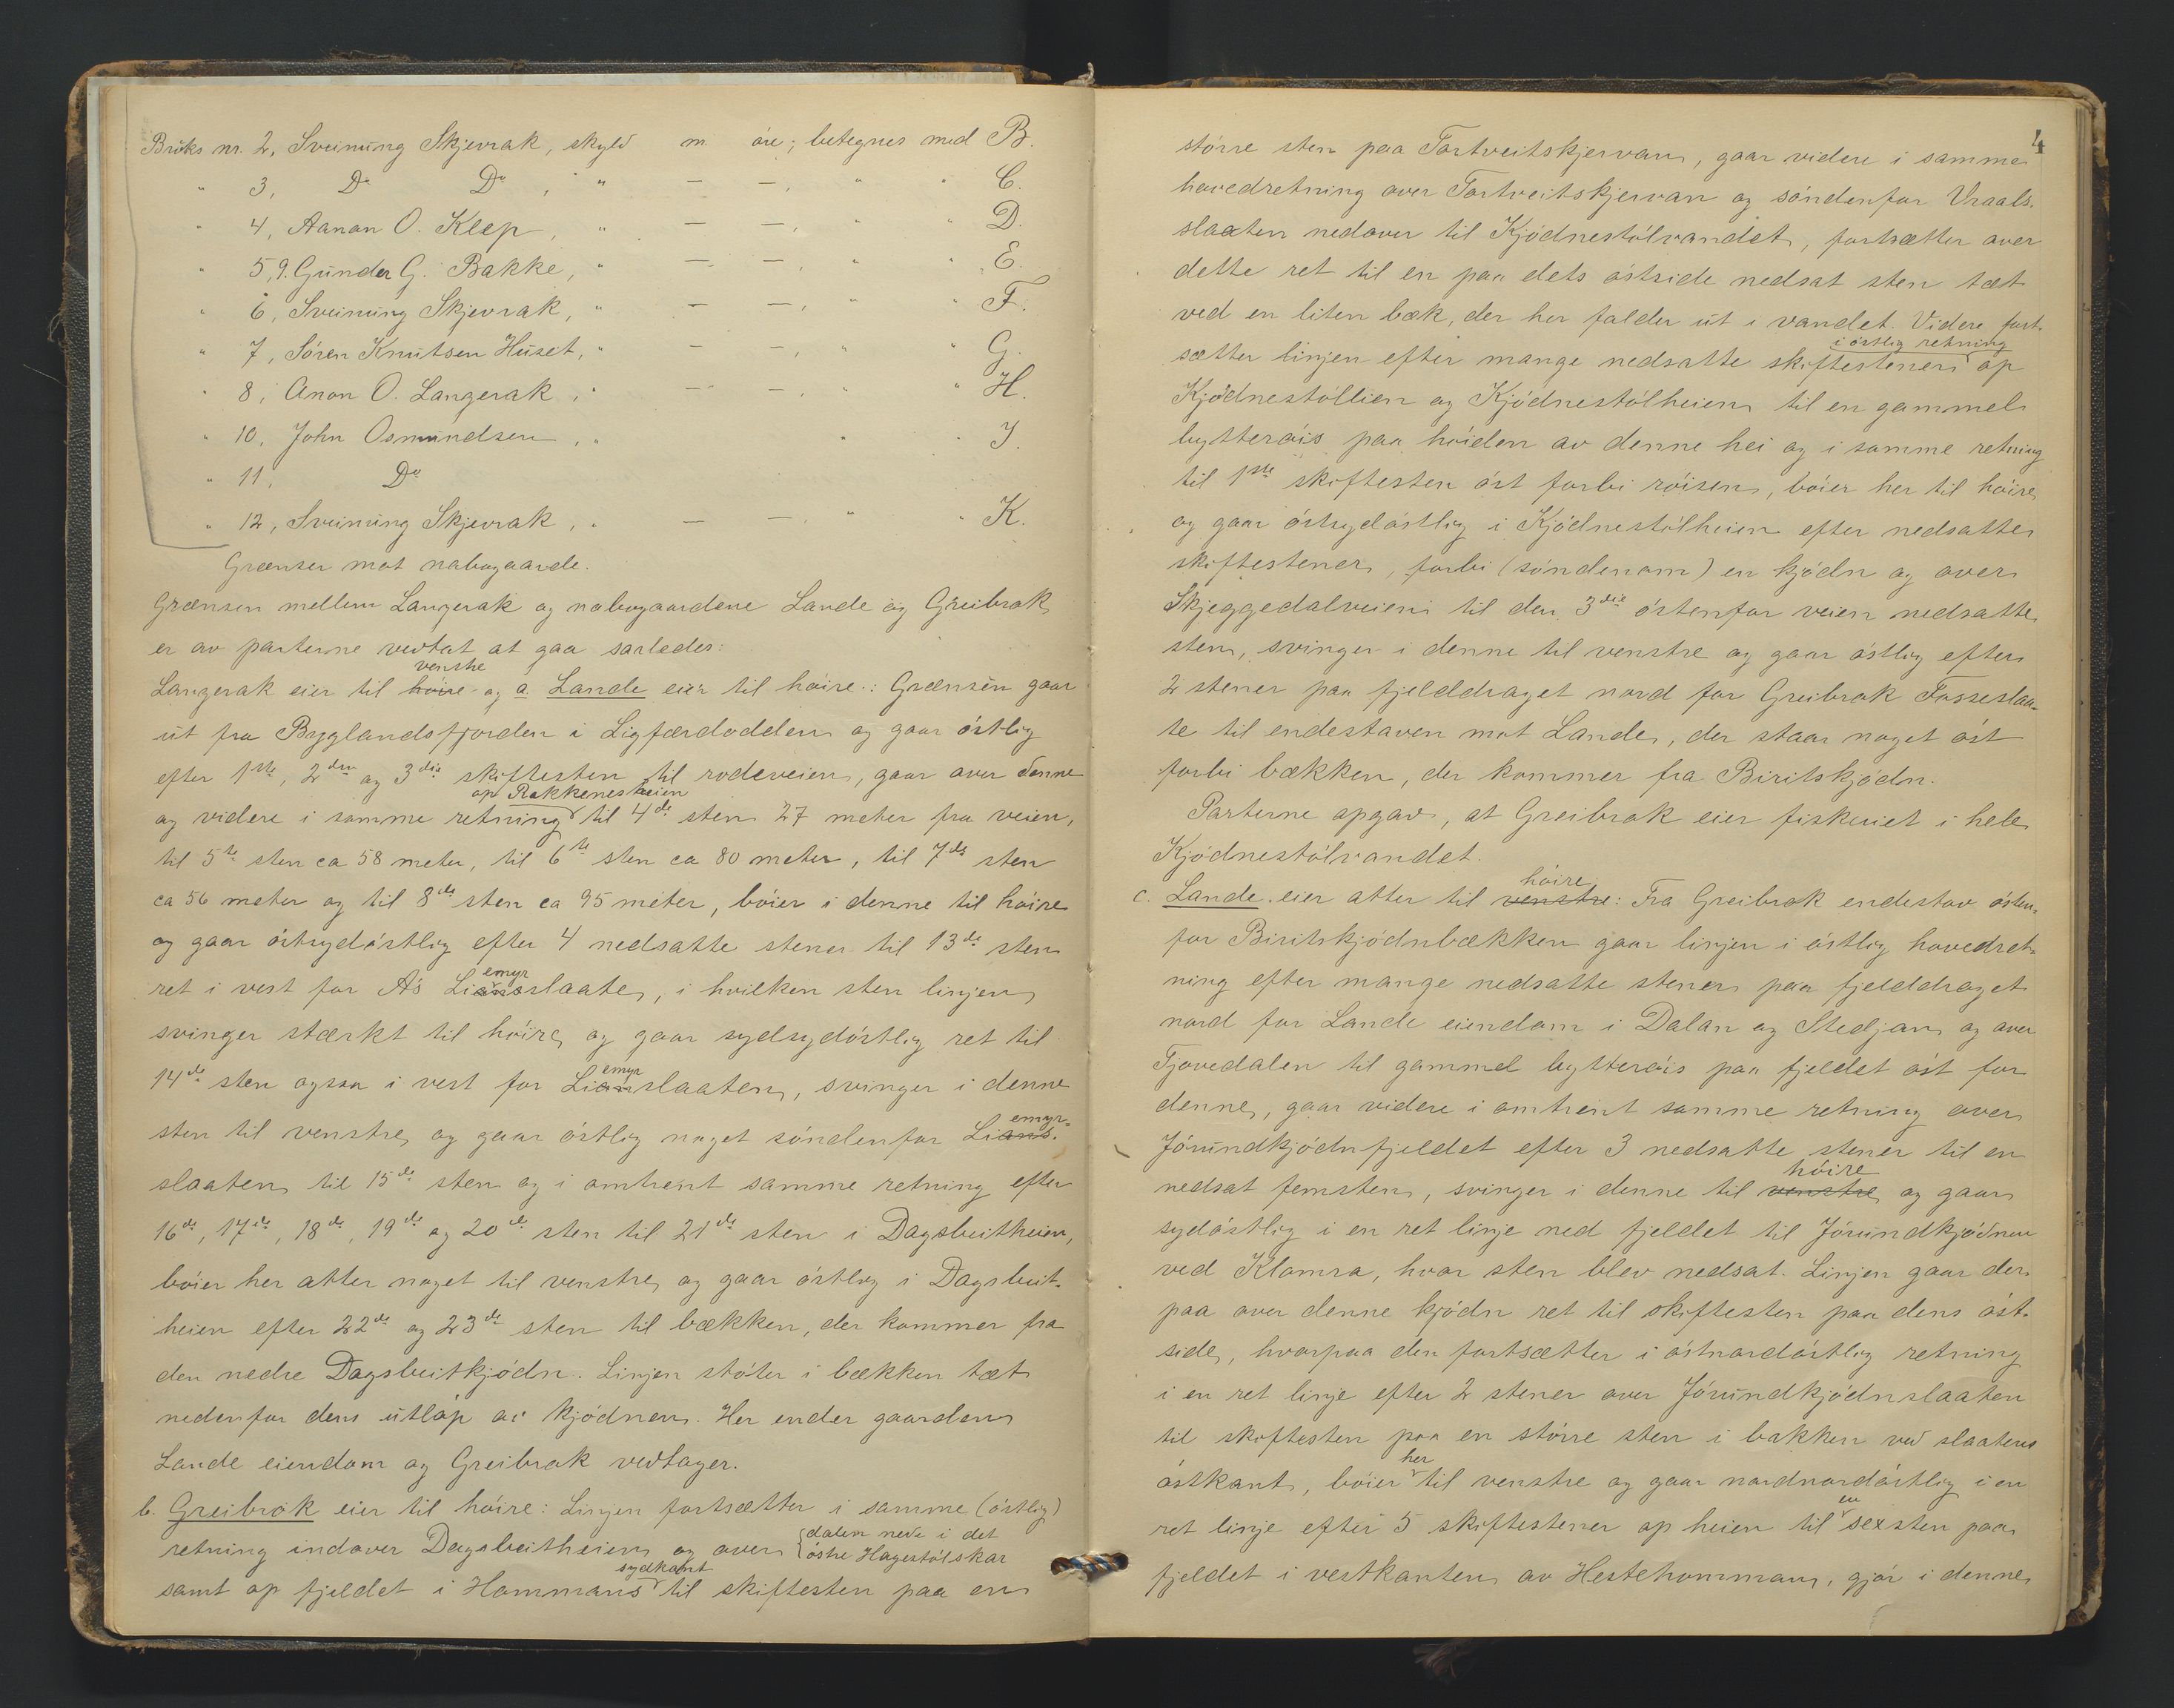 Bruks nr. 2, Sveinung Skjevrak, skyld m. øre; betegnes med B.
" 3, Do Do, " — —, " " C.
" 4, Aanon O. Klep, " — —, " " D.
" 5,9. Gunder G. Bakke, " — —, " " E.
" 6, Sveinung Skjevrak, " — —, " " F.
" 7, Søren Knutsen Huset, " — —, " " G.
" 8, Anon O. Langerak, " — —, " " H.
" 10, John Osmundsen, " " " J.
" 11, Do
" 12, Sveinung Skjevrak, " — —, " " K.
Grænser mot nabogaarde.
Grænsen mellem Langerak og nabogaardene Lande og Greibrok
er av parterne vedtat at gaa saaledes:
venstre
Langerak eier til høire og a Lande eier til høire: Grænsen gaar
ut fra Byglandsfjorden i Ligfærdodden og gaar østlig
efter 1ste, 2den og 3die skiftesten til rodeveien, gaar over denne
op Rakkenesheien
og videre i samme retning til 4de sten 27 meter fra veien,
til 5te sten ca 58 meter, til 6te sten ca 80 meter, til 7de sten
ca 56 meter og til 8de sten ca 95 meter, bøier i denne til høire
og gaar østsydøstlig efter 4 nedsatte stener til 13de sten
emyr
ret i vest for A's Liansslaate, i hvilken sten linjen
svinger stærkt til høire og gaar sydsydøstlig ret til
emyr
14de sten ogsaa i vest for Lianslaaten, svinger i denne
emyr-
sten til venstre og gaar østlig noget søndenfor Lians-
slaaten til 15de sten og i omtrent samme retning efter
16de, 17de, 18de, 19de og 20de sten til 21de sten i Dagsbeitheien,
bøier her atter noget til venstre og gaar østlig i Dagsbeit-
heien efter 22de og 23de sten til bækken, der kommer fra
den nedre Dagsbeitkjødn. Linjen støter i bækken tæt
nedenfor dens utløp av kjødnen. Her ender gaarden
Lande eiendom og Greibrok vedtager.
b. Greibrok eier til høire: Linjen fortsætter i samme (østlig)
dalen nede i det
retning indover Dagsbeitheien og over østre Hagestølskar
sydkant
samt op fjeldet i Hommans til skiftesten paa en
4
større sten paa Tortveitskjervan, gaar videre i samme
hovedretning over Tortveitskjervan og søndenfor Vraals-
slaaten nedover til Kjødnestølvandet, fortsætter over
dette ret til en paa dets østside nedsat sten tæt
ved en liten bæk, der her falder ut i vandet. Videre fort-
i østlig retning
sætter linjen efter mange nedsatte skiftestener op
Kjødnestøllien og Kjødnestølheien til en gammel
bytterøis paa høiden av denne hei og i samme retning
til 1ste skiftesten øst forbi røisen, bøier her til høire
og gaar østsydøstlig i Kjødnestølheien efter nedsatte
skiftestener, forbi (søndenom) en kjødn og over
Skjeggedalveien til den 3die østenfor veien nedsatte
sten, svinger i denne til venstre og gaar østlig efter
2 stener paa fjelddraget nord for Greibrok Fosseslaa-
te til endestaven mot Lande, der staar noget øst
forbi bækken, der kommer fra Biritskjødn.
Parterne opgav, at Greibrok eier fiskeriet i hele
Kjødnestølvandet.
høire
c. Lande eier atter til venstre: Fra Greibrok endestav østen-
for Biritskjødnbækken gaar linjen i østlig hovedret-
ning efter mange nedsatte stener paa fjelddraget
nord for Lande eiendom i Dalan og Stedjan og over
Tjovedalen til gammel bytterøis paa fjeldet øst for
denne, gaar videre i omtrent samme retning over
Jørundkjødnfjeldet efter 3 nedsatte stener til en
høire
nedsat femsten, svinger i denne til venstre og gaar
sydøstlig i en ret linje ned fjeldet til Jørundkjødnen
ved Klomra, hvor sten blev nedsat. Linjen gaar der-
paa over denne kjødn ret til skiftesten paa dens øst-
side, hvorpaa den fortsætter i østnordøstlig retning
i en ret linje efter 2 stener over Jørundkjødnslaaten
til skiftesten paa en større sten i bakken ved slaatens
her
østkant, bøier til venstre og gaar nordnordøstlig i en
en
ret linje efter 5 skiftestener op heien til sexsten paa
fjeldet i vestkanten av Hestehommen, gjør i denne